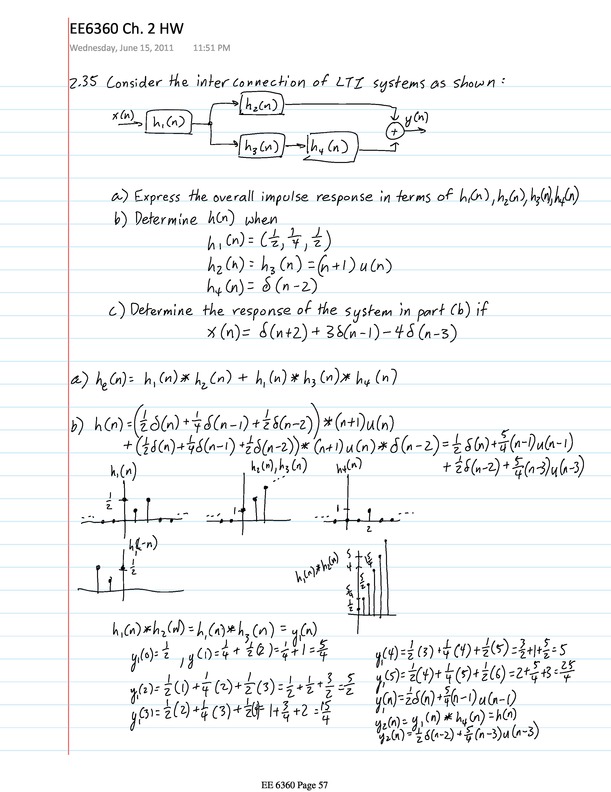 EE6360 Ch. 2 HW
Wednesday, June 15, 2011 11:51 PM
2.35 Consider the interconnection of LTI systems as shown:
x(n) h₁(n) h₂(n) h₃(n) h₄(n) + y(n)
a) Express the overall impulse response in terms of h₁(n), h₂(n), h₃(n), h₄(n)
b) Determine h(n) when
h₁(n) = (1/2, 1/4, 1/2)
h₂(n) = h₃(n) = (n+1) u(n)
h₄(n) = δ(n-2)
c) Determine the response of the system in part (b) if
x(n) = δ(n+2) + 3δ(n-1) - 4δ(n-3)
a) hₑ(n) = h₁(n) * h₂(n) + h₁(n) * h₃(n) * h₄(n)
b) h(n) = (1/2 δ(n) + 1/4 δ(n-1) + 1/2 δ(n-2)) * (n+1) u(n)
+ (1/2 δ(n) + 1/4 δ(n-1) + 1/2 δ(n-2)) * (n+1) u(n) * δ(n-2) = 1/2 δ(n) + 5/4 (n-1) u(n-1)
+ 1/2 δ(n-2) + 5/4 (n-3) u(n-3)
h₁(n) h₂(n), h₃(n) h₄(n)
1/2 1 1 2
h₁(-n) 1/2
h₁(n) * h₂(n) 5 4 15/4 5/2 5/4 1/2
h₁(n) * h₂(n) = h₁(n) * h₃(n) = y₁(n)
y₁(0) = 1/2, y₁(1) = 1/4 + 1/2 (2) = 1/4 + 1 = 5/4
y₁(2) = 1/2 (1) + 1/4 (2) + 1/2 (3) = 1/2 + 1/2 + 3/2 = 5/2
y₁(3) = 1/2 (2) + 1/4 (3) + 1/2 (4 1 + 3/4 + 2 = 15/4
y₁(4) = 1/2 (3) + 1/4 (4) + 1/2 (5) = 3/2 + 1 + 5/2 = 5
y₁(5) = 1/2 (4) + 1/4 (5) + 1/2 (6) = 2 + 5/4 + 3 = 25/4
y₁(n) = 1/2 δ(n) + 5/4 (n-1) u(n-1)
y₂(n) = y₁(n) * h₄(n) = h(n)
y₂(n) = 1/2 δ(n-2) + 5/4 (n-3) u(n-3)
EE 6360 Page 57